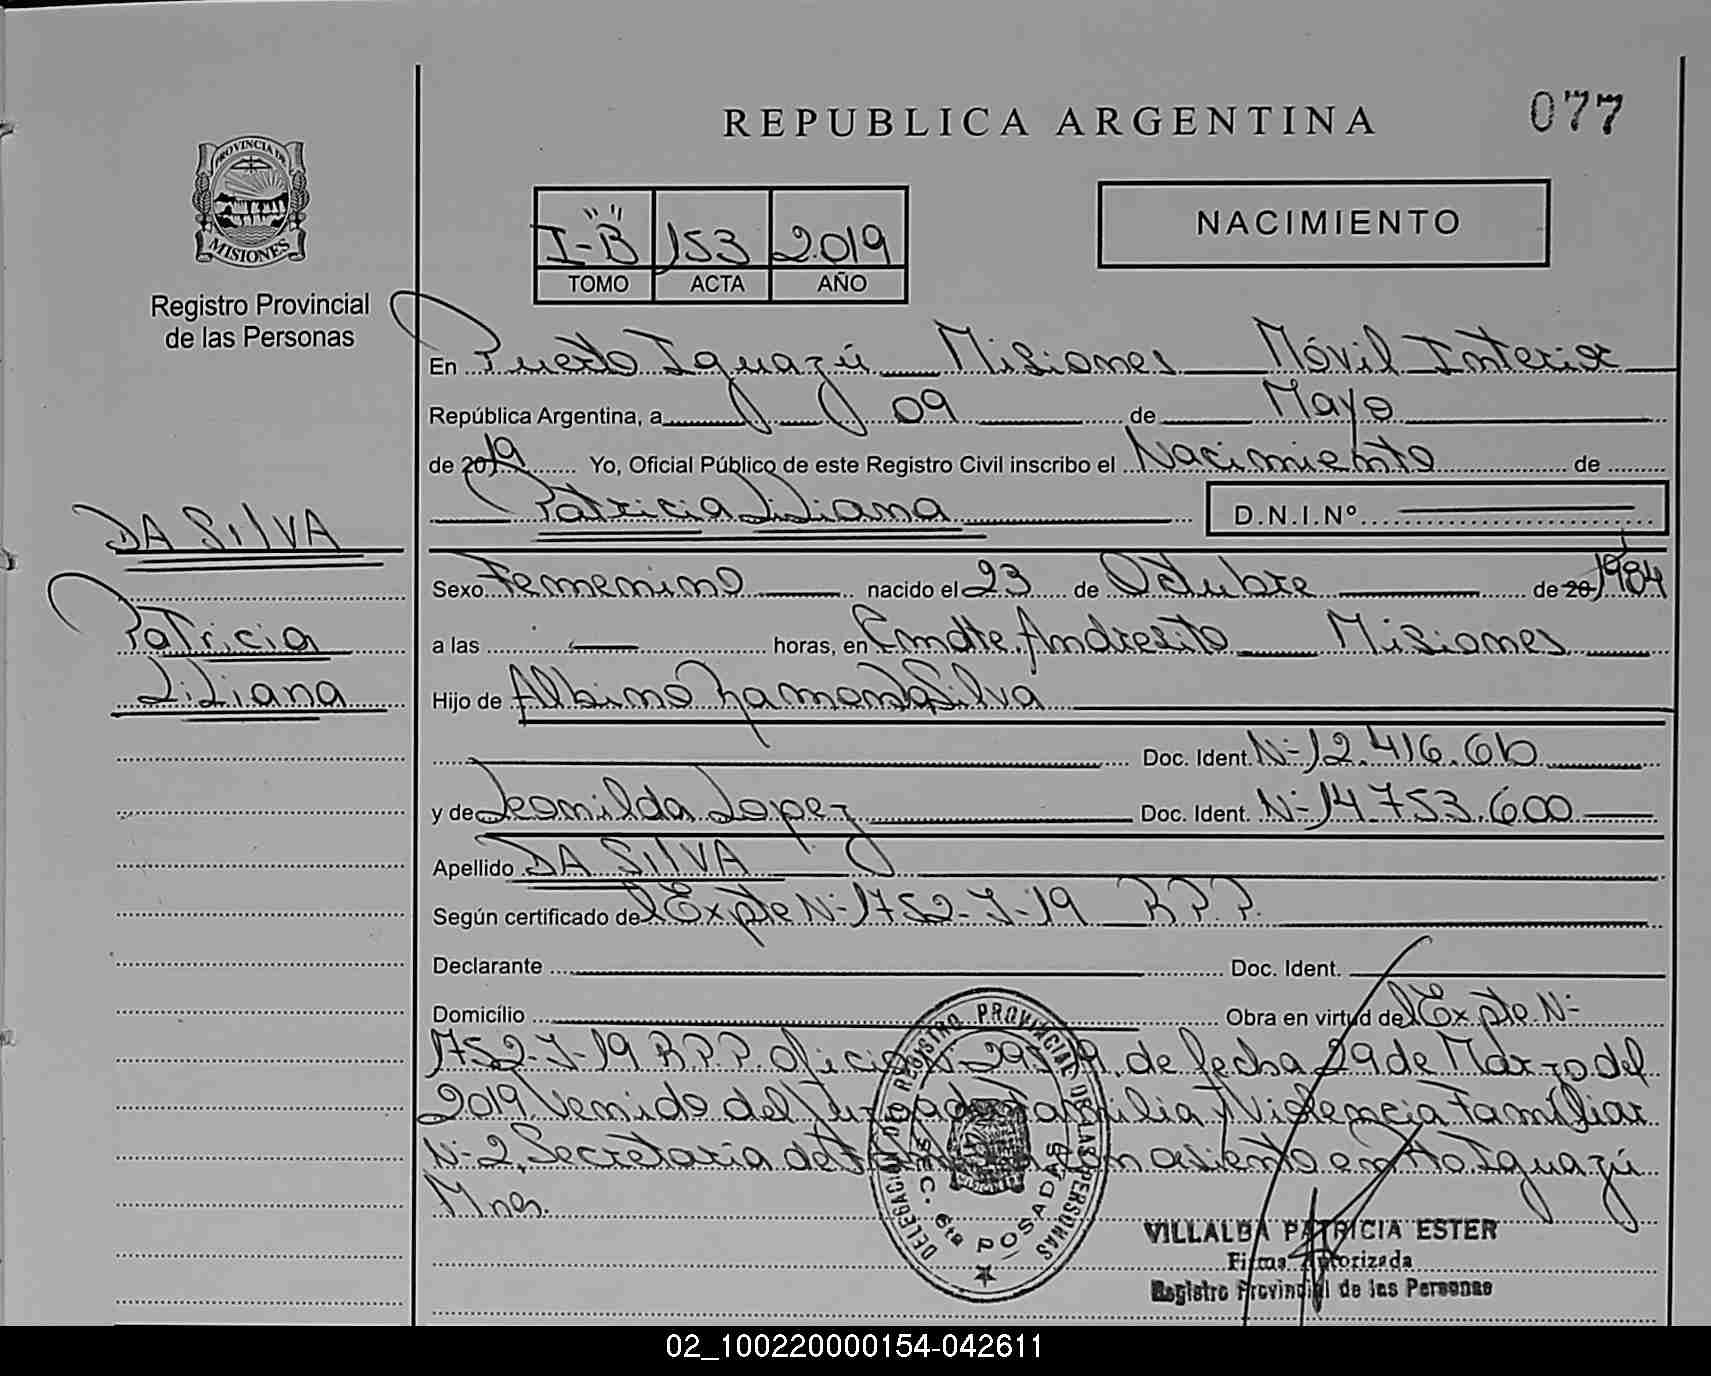 REPUBLICA ARGENTINA
077
PROVINCIA DE
MISIONES
Registro Provincial
de las Personas
I-"B" 153 2019
TOMO ACTA AÑO
NACIMIENTO
En Puerto Iguazú Misiones Móvil Interior
República Argentina, a 09 de Mayo
de 2019 Yo, Oficial Público de este Registro Civil inscribo el Nacimiento de
Patricia Liliana
D.N.I.Nº
DA SILVA
Patricia
Liliana
Sexo Femenino nacido el 23 de Octubre de 20 1984
a las horas, en Cmdte. Andresito Misiones
Hijo de Albino Ramon Da Silva
Doc. Ident. Nº 12.416.
y de Leonilda Lopez Doc. Ident. Nº 14.753.600
Apellido DA SILVA
Según certificado del Expte Nº 1752-J-19 R.P.P.
Declarante Doc. Ident.
Domicilio Obra en virtud del Expte. Nº
1752-J-19 R.P.P. oficio de fecha 29 de Marzo del
2019. Venido del Juzgado Familia y Violencia Familiar
Nº 2, Secretaria de asiento en Pto Iguazú
Mnes.
DELEGACION DEL REGISTRO PROVINCIAL DE LAS PERSONAS
SEC. 6ta POSADAS
VILLALBA PATRICIA ESTER
Firma Autorizada
Registro Provincial de las Personas
02_100220000154-042611